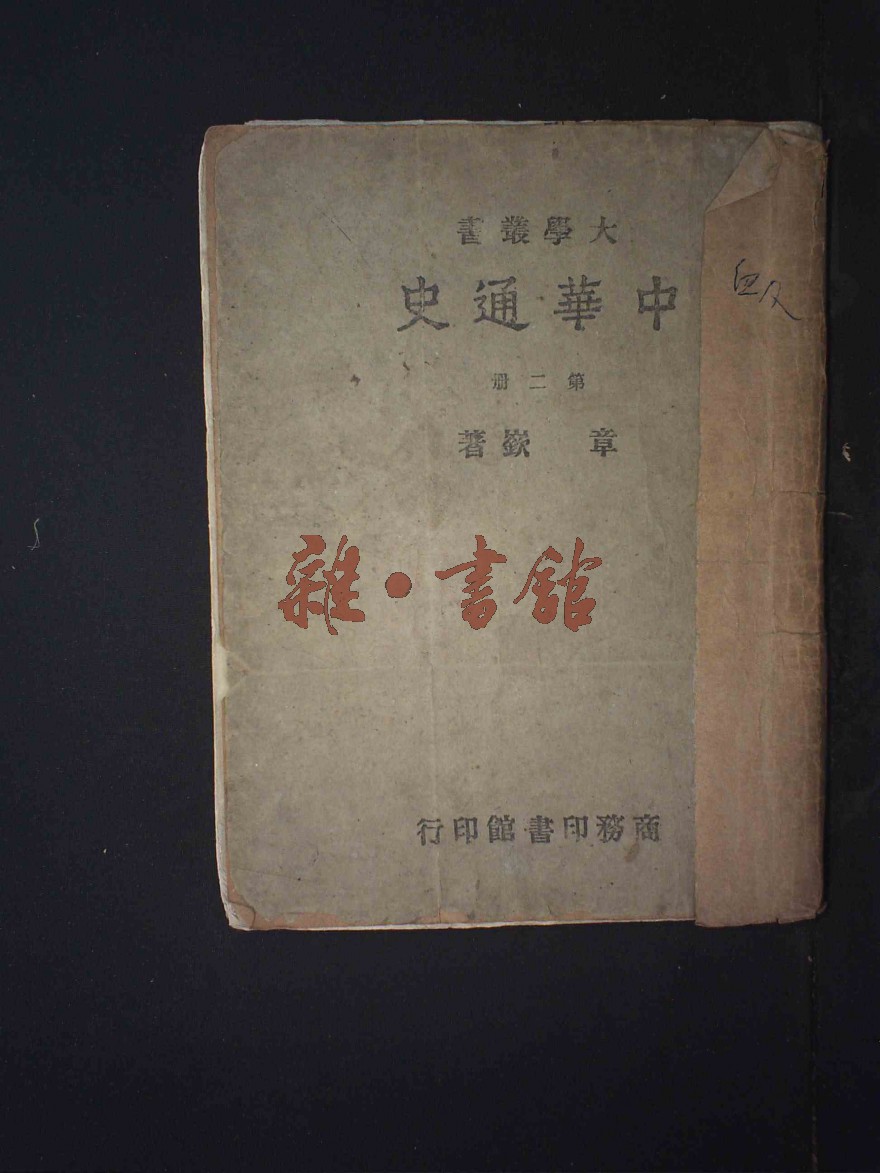 大學叢書
中華通史
第二册
章嶔著
雜·書館
商務印書館印行